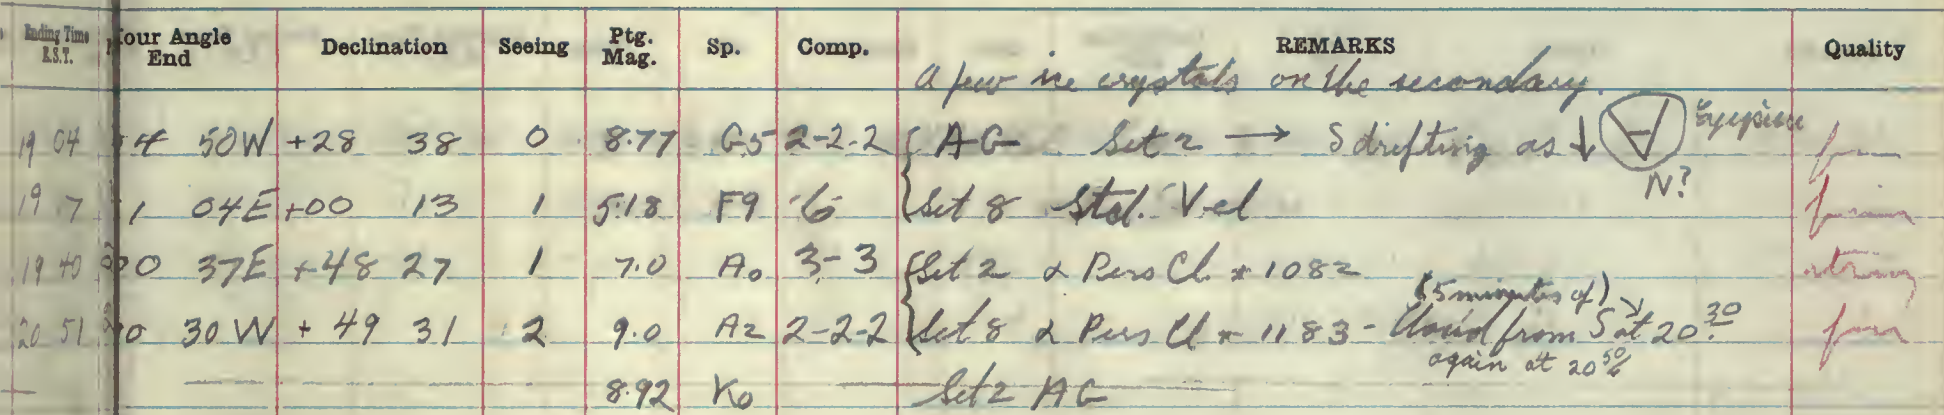 Ending Time E.S.T. Hour Angle End Declination Seeing Ptg. Mag. Sp. Comp. REMARKS Quality
A few ice crystals on the secondary.
19 04 4 50W +28 38 0 8.77 G5 2-2-2 AG Set 2 → S drifting as ↓ A Eyepiece
N?
19 7 1 04E +00 13 1 5.18 F9 6 Set 8 Std. Vel
19 40 0 37E +48 27 1 7.0 A0 3-3 Set 2 α Pers Cl * 1082 strong
(5 minutes of)
20 51 0 30W + 49 31 2 9.0 A2 2-2-2 Set 8 α Pers Cl * 1183 - Cloud from S at 20 30
again at 20 50
8.92 K0 Set 2 AG